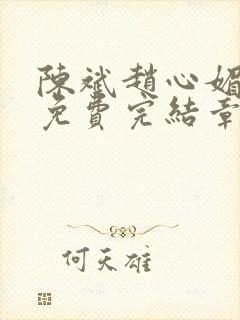 陳斌趙心媚
免費完結章
何天雄